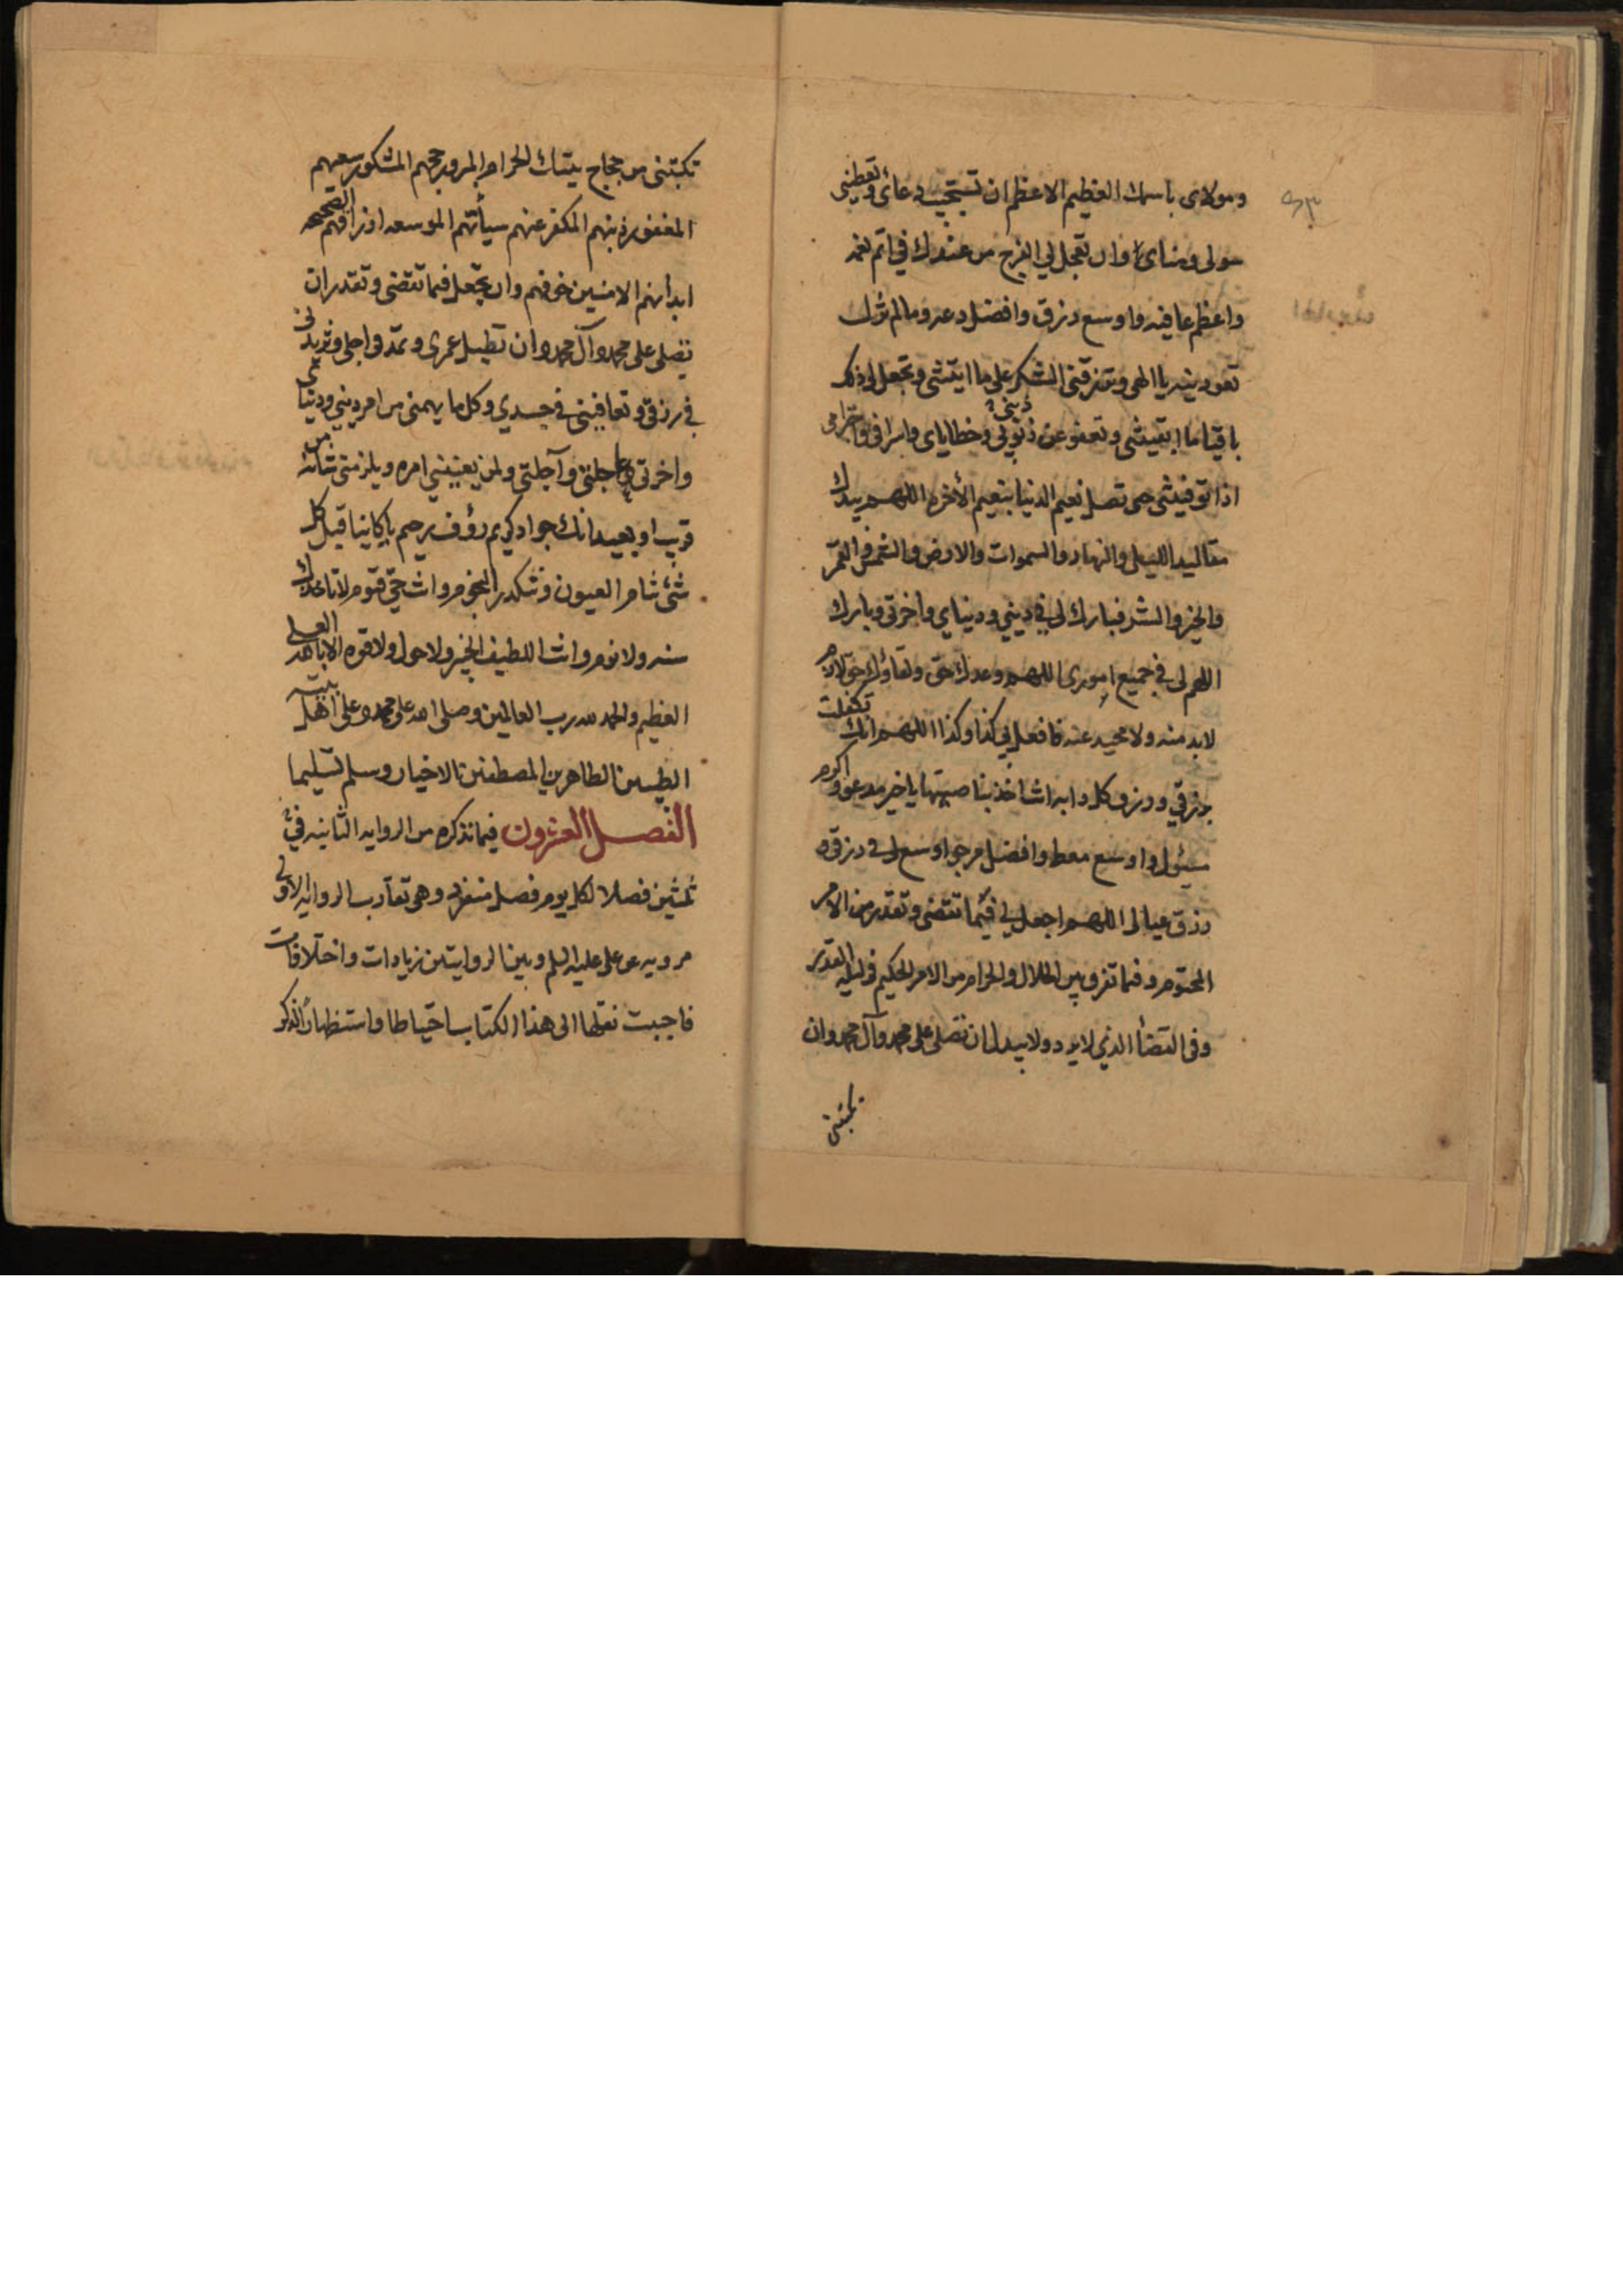 ومولاى باسمك العظيم الاعظم ان تستجيب دعائى وتعطينى
سولى ومناى وان تعجل لي الفرج من عندك في اتم نعمه
واعظم عافيه واوسع رزق وافضل دعه وما لم تزل
تعودينيه يا الهى وترزقنى الشكر على ما ابتتنى وتجعل لى ذلك
باقيا ما ابقيتنى وتعفو عن ذنوبى وخطاياى واسرافى واجترامى
اذا توفيتنى حتى تصل نعيم الدنيا بنعيم الأخره اللهم بيدك
مقاليد الليل والنهار والسموات والارض والشمس والقمر
والخير والشر فبارك لى في ديني ودنياي واخرتى وبارك
اللهم لى في جميع امورى اللهم وعدك حق ولقاؤك حق لازم
لابد منه ولا محيد عنه فافعل بي كذا وكذا اللهم انك تكفلت
برزقي ورزق كل دابه انت اخذ بناصيتها يا خير مدعو واكرم
مسئول واوسع معط وافضل مرجو اوسع لى في رزقى و
رزق عيالى اللهم اجعل لي فيما تقضى وتقدر من الامر
المحتوم وفيما تفرق بين الحلال والحرام من الامر الحكيم فى ليله القدر
وفى القضأ الذي لا يرد ولا يبدل ان تصلى على محمد وآل محمد وان
تكبتنى
تكبتنى من حجاج بيتك الحرام المبرور حجهم المشكور سعيهم
المغفور ذنبهم المكفر عنهم سيأتهم الموسعه ارزاقهم الصحيحه
ابدانهم الامنين خوفهم وان تجعل فيما تقضى وتقدر ان
تصلى على محمد وآل محمد وان تطيل عمرى وتمد فى اجلى وتزيد لى
في رزقى وتعافينى في جسدي وكل ما يهمنى من امر دينى ودنياى
واخرتى وعاجلتى وآجلتى ولمن يعنينى امره ويلزمنى شانه من
قريب او بعيد انك جواد كريم رؤف رحيم يا كاينا قبل كل
شئ تنام العيون وتنكدر النجوم وانت حي قيوم لا تاخذك
سنه ولا نوم وانت اللطيف الخبير ولا حول ولا قوه الا بالله العلى
العظيم والحمد لله رب العالمين وصلى الله على محمد وعلى اهل بيته
الطيبين الطاهرين المصطفين الاخيار وسلم تسليما
الفصل العشرون فيما نذكره من الروايه الثانيه في
ثلثين فصلا لكل يوم فصل منفرد وهى تقارب الروايه الاولى
مرويه عن على عليه السلم وبين الروايتين زيادات واختلافات
فاحببت نقلها الى هذا الكتاب احتياطا واستظهارا لذكر